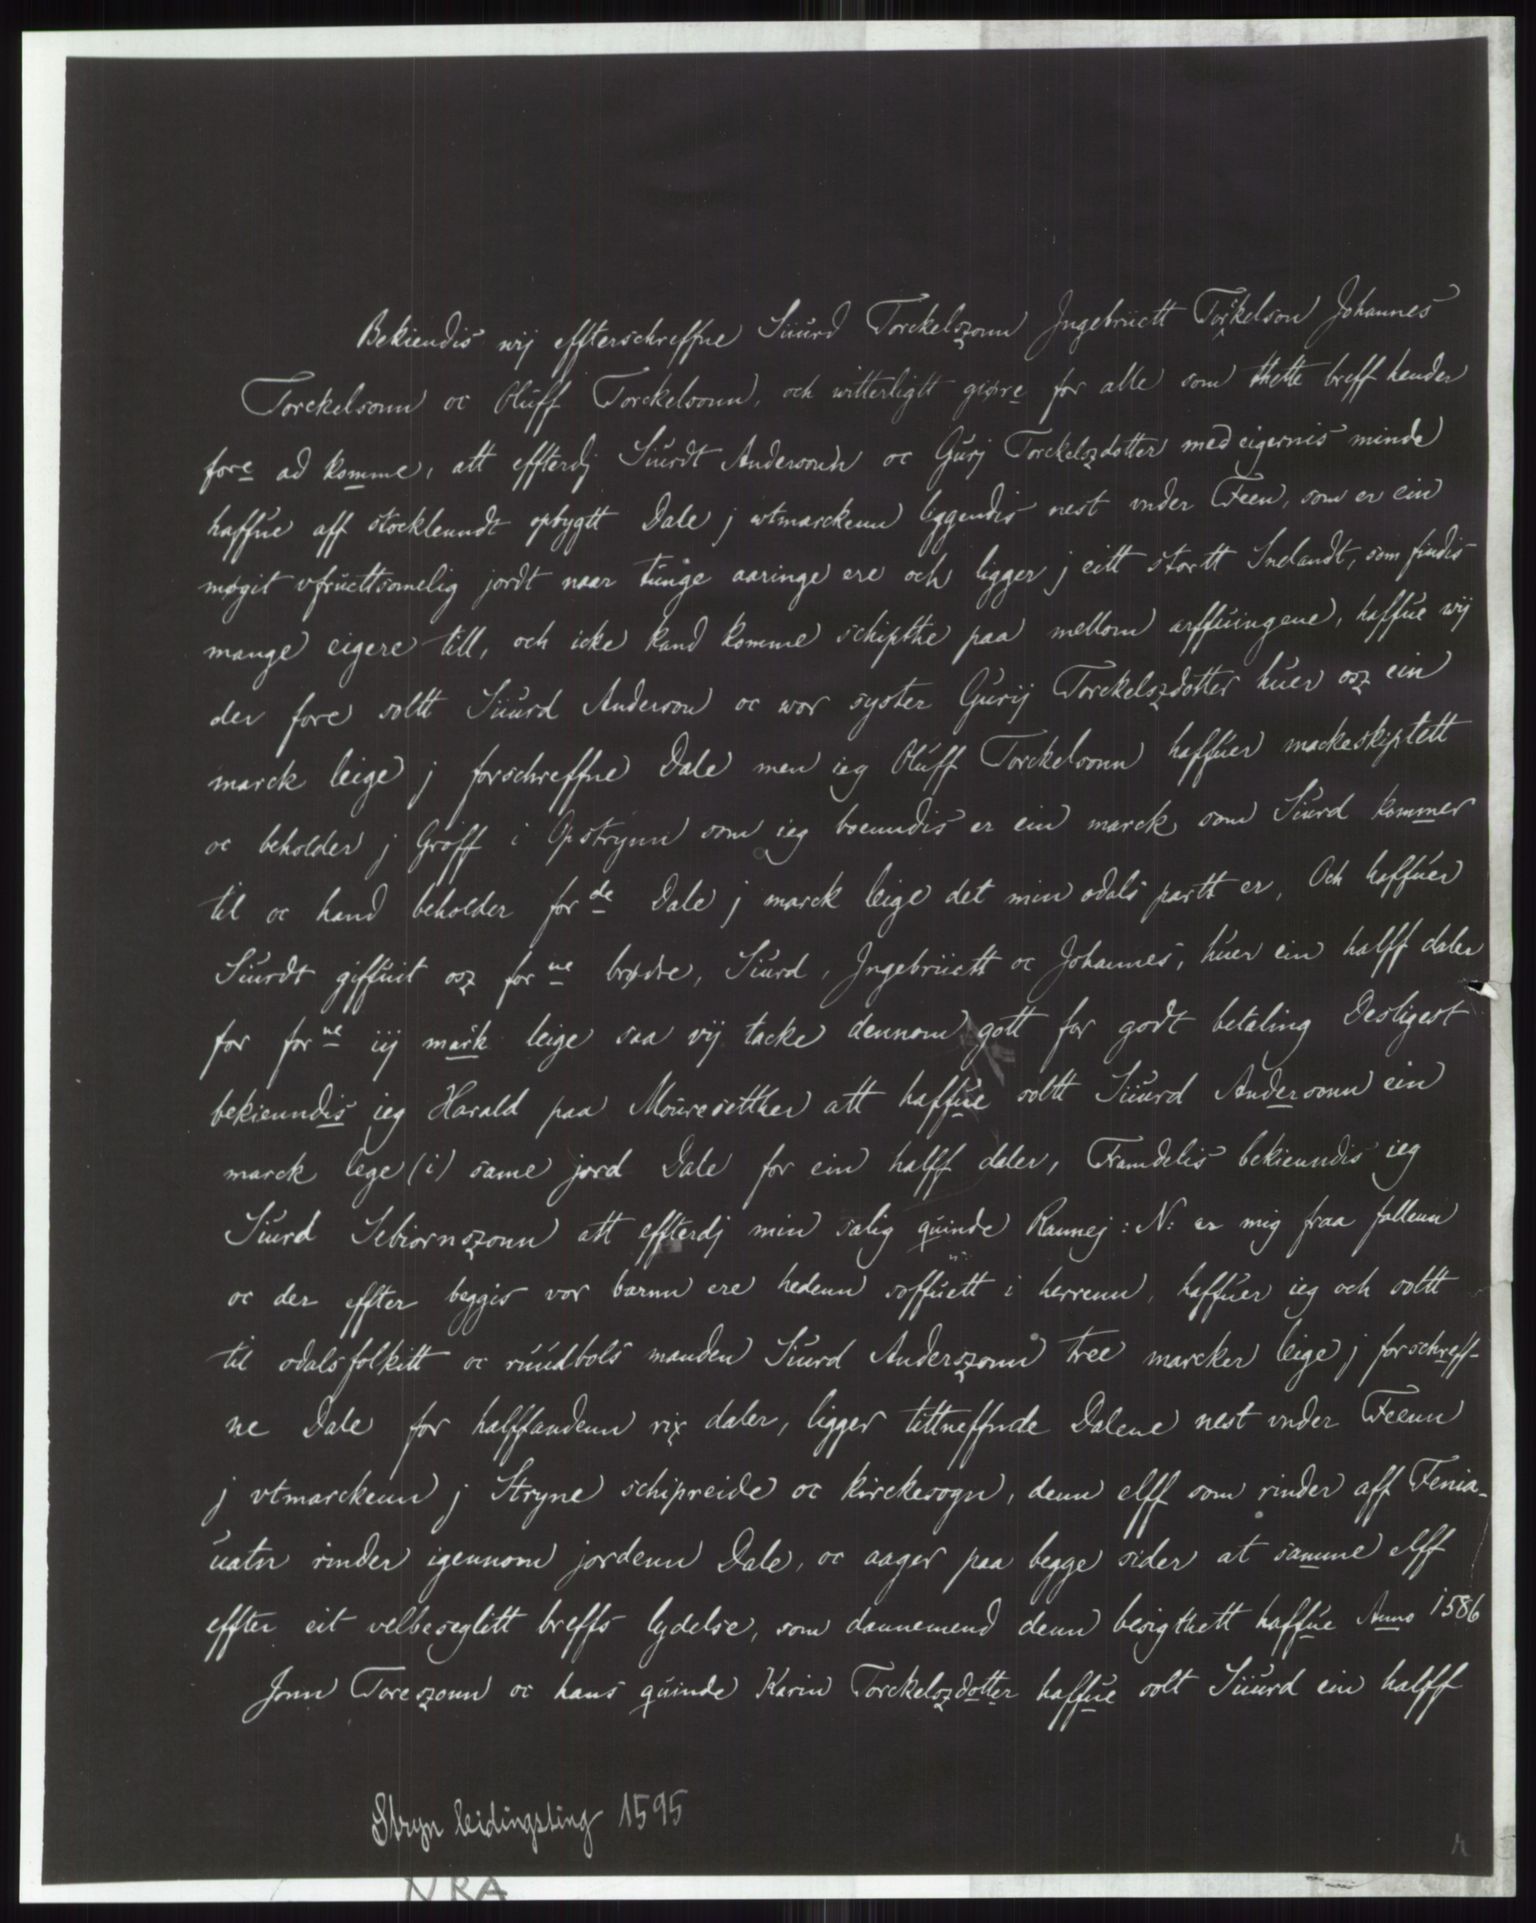 Bekiendis wij effterschreffne Siurd Torckelszonn Jngebriictt Torkelson Johannes
Torckelsonn oc Oluff Torckelsonn, och witterligtt giøre for alle som thette breff hender
fore ad komme, att effterdj Siurdt Andersonn oc Gurj Torckelszdotter med eigernis minde
haffue aff stocklenndt opbygtt Dale j wtmarckenn liggendis nest vnder Feen, som er ein
møgit vfructtsomelig jordt naar tunge aaringe ere och ligger j eitt stortt Snelandt, som findis
mange eigere till, och icke kand komme schipthe paa mellom arffuingene, haffue wij
der fore soltt Siurd Anderson oc wor syster Gurij Torckelszdotter huer osz ein
marck leige j forschreffne Dale men ieg Oluff Torckelsonn haffuer mackeskiptett
oc beholder j Grøff i Opstrynn som ieg boenndis er ein marck som Siurd kommer
til oc hand beholder for de Dale j marck leige det min odals partt er, Och haffuer
Siurdt giffuit osz for ne brødre, Siurd, Jngebriictt oc Johannes, huer ein halff daler
for for ne iij mark leige saa vij tacke dennom gott for godt betaling Desligest
bekienndis ieg Harald paa Mouresetther att haffue soltt Siurd Andersonn ein
marck lege (i) same jord Dale for ein halff daler, Framdelis bekienndis ieg
Siurd Sebiørnszonn att effterdj min salig quinde Rannej : N : er mig fraa fallenn
oc der effter beggis vor barnn ere hedenn soffuett i herrenn, haffuer ieg och soltt
til odalsfolkitt oc ruudbols manden Siurd Anderszonn tree marcker leige j forschreff-
ne Dale for halffandenn rix daler, ligger tittneffnde Dalene nest vnder Feenn
j vtmarckenn j Stryne schipreide oc kirckesogn, denn elff som rinder aff Fenia-
uatn rinder igennom jordenn Dale, oc aager paa begge sider at samme elff
effter eit velbeseglitt breffs lydelse, som dannemend denn besigthett haffue Anno 1586
Jonn Toreszonn oc hans quinde Karin Torckelszdotter haffue solt Siurd ein halff
Stryn leidingsting 1595
NRA